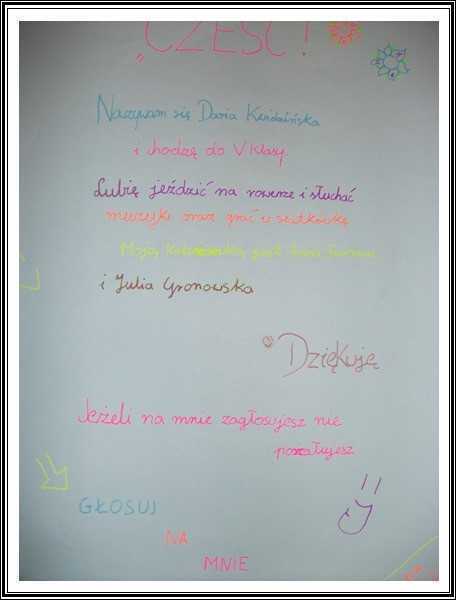 „CZEŚĆ!
Nazywam się Daria
i chodzę do V klasy.
Lubię jeździć na rowerze i słuchać
muzyki oraz grać w siatkówkę
Moją jest
i Julia Gronowska
Dziękuję
Jeżeli na mnie zagłosujesz nie
pożałujesz
GŁOSUJ
NA
MNIE